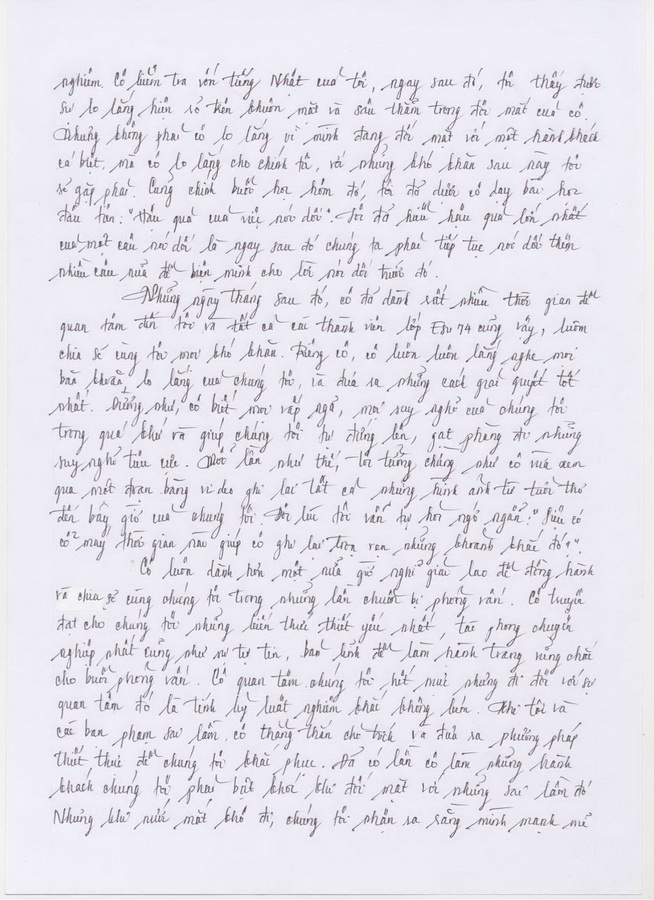 nghiêm. Cô kiểm tra vốn tiếng Nhật của tôi, ngay sau đó, tôi thấy được
sự lo lắng hiện rõ trên khuôn mặt và sâu thẳm trong đôi mắt của cô.
Nhưng không phải cô lo lắng vì mình đang đối mặt với một hành khách
cá biệt, mà cô lo lắng cho chính tôi, với những khó khăn sau này tôi
sẽ gặp phải. Cũng chính buổi học hôm đó, tôi đã được cô dạy bài học
đầu tiên: "Hậu quả của việc nói dối". Tôi đã hiểu hậu quả lớn nhất
của một câu nói dối là ngay sau đó chúng ta phải tiếp tục nói dối thêm
nhiều câu nữa để biện minh cho lời nói dối trước đó.
Những ngày tháng sau đó, cô đã dành rất nhiều thời gian để
quan tâm đến tôi và tất cả các thành viên lớp Esu 74 cũng vậy, luôn
chia sẻ cùng tôi mọi khó khăn. Riêng cô, cô luôn luôn lắng nghe mọi
băn khoăn, lo lắng của chúng tôi, và đưa ra những cách giải quyết tốt
nhất. Dường như, cô biết mọi vấp ngã, mọi suy nghĩ của chúng tôi
trong quá khứ và giúp chúng tôi tự đứng lên, gạt phăng đi những
suy nghĩ tiêu cực. Mỗi lần như thế, tôi tưởng chừng như cô vừa xem
qua một đoạn băng video ghi lại tất cả những hình ảnh từ tuổi thơ
đến bây giờ của chúng tôi. Đôi lúc tôi vẫn tự hỏi ngớ ngẩn: "Liệu có
cỗ máy thời gian nào giúp cô ghi lại trọn vẹn những khoảnh khắc đó?".
Cô luôn dành hơn một nửa giờ nghỉ giải lao để đồng hành
và chia sẻ cùng chúng tôi trong những lần chuẩn bị phỏng vấn. Cô truyền
đạt cho chúng tôi những kiến thức thiết yếu nhất, tác phong chuyên
nghiệp nhất cũng như sự tự tin, bản lĩnh để làm hành trang vững chắc
cho buổi phỏng vấn. Cô quan tâm chúng tôi hết mực nhưng đi đôi với sự
quan tâm đó là tính kỷ luật nghiêm khắc không kém. Khi tôi và
các bạn phạm sai lầm, cô thẳng thắn chỉ trích và đưa ra phương pháp
thiết thực để chúng tôi khắc phục. Đã có lần cô làm những hành
khách chúng tôi phải bật khóc khi đối mặt với những sai lầm đó
Nhưng khi nước mắt khô đi, chúng tôi nhận ra rằng mình mạnh mẽ